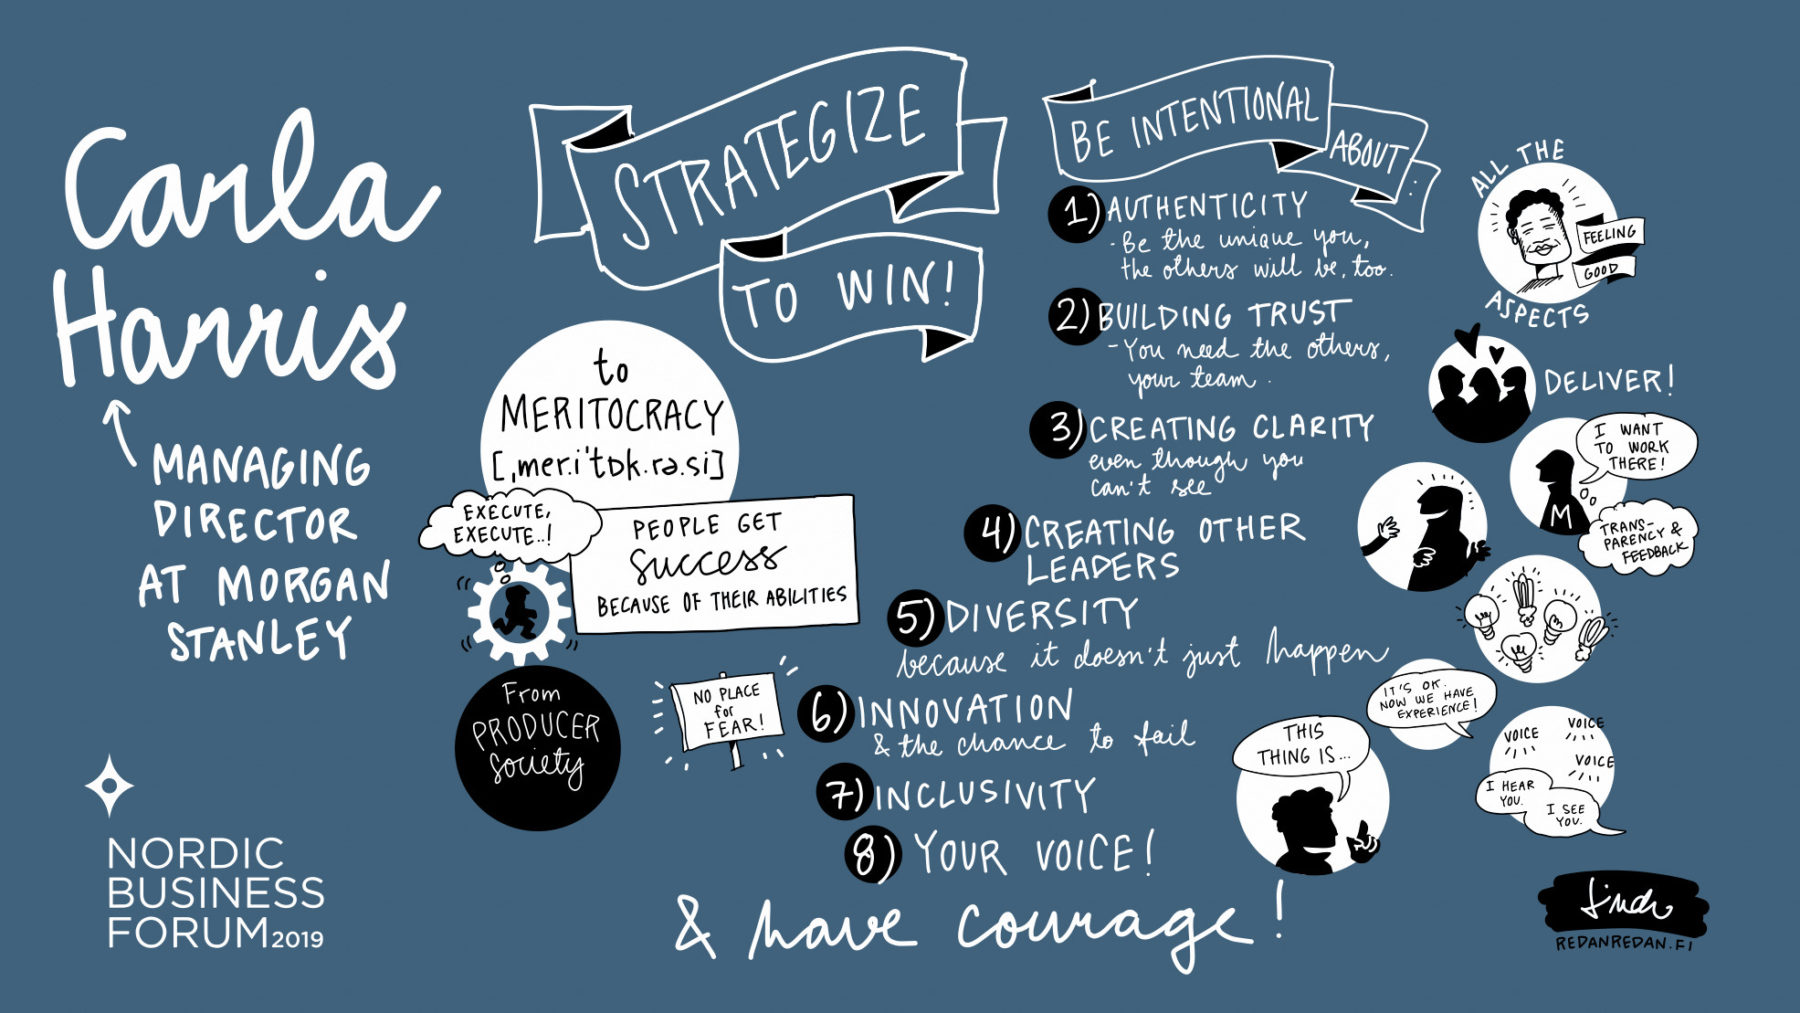 Carla
Harris
MANAGING
DIRECTOR
AT MORGAN
STANLEY
NORDIC
BUSINESS
FORUM2019
STRATEGIZE
TO WIN!
to
MERITOCRACY
[ˌmer.iˈtɒk.rə.si]
EXECUTE,
EXECUTE..!
PEOPLE GET
SUCCESS
BECAUSE OF THEIR ABILITIES
From
PRODUCER
Society
NO PLACE
for
FEAR!
BE INTENTIONAL
ABOUT:
1) AUTHENTICITY
- Be the unique you,
the others will be, too.
2) BUILDING TRUST
- You need the others,
your team.
3) CREATING CLARITY
even though you
can't see
4) CREATING OTHER
LEADERS
5) DIVERSITY
because it doesn't just happen
6) INNOVATION
& the chance to fail
7) INCLUSIVITY
8) YOUR VOICE!
& have courage!
ALL THE
FEELING
GOOD
ASPECTS
DELIVER!
I WANT
TO WORK
THERE!
M
TRANS-
PARENCY &
FEEDBACK
IT'S OK.
NOW WE HAVE
EXPERIENCE!
THIS
THING IS...
VOICE
VOICE
VOICE
I HEAR
YOU.
I SEE
YOU.
REDANREDAN.FI